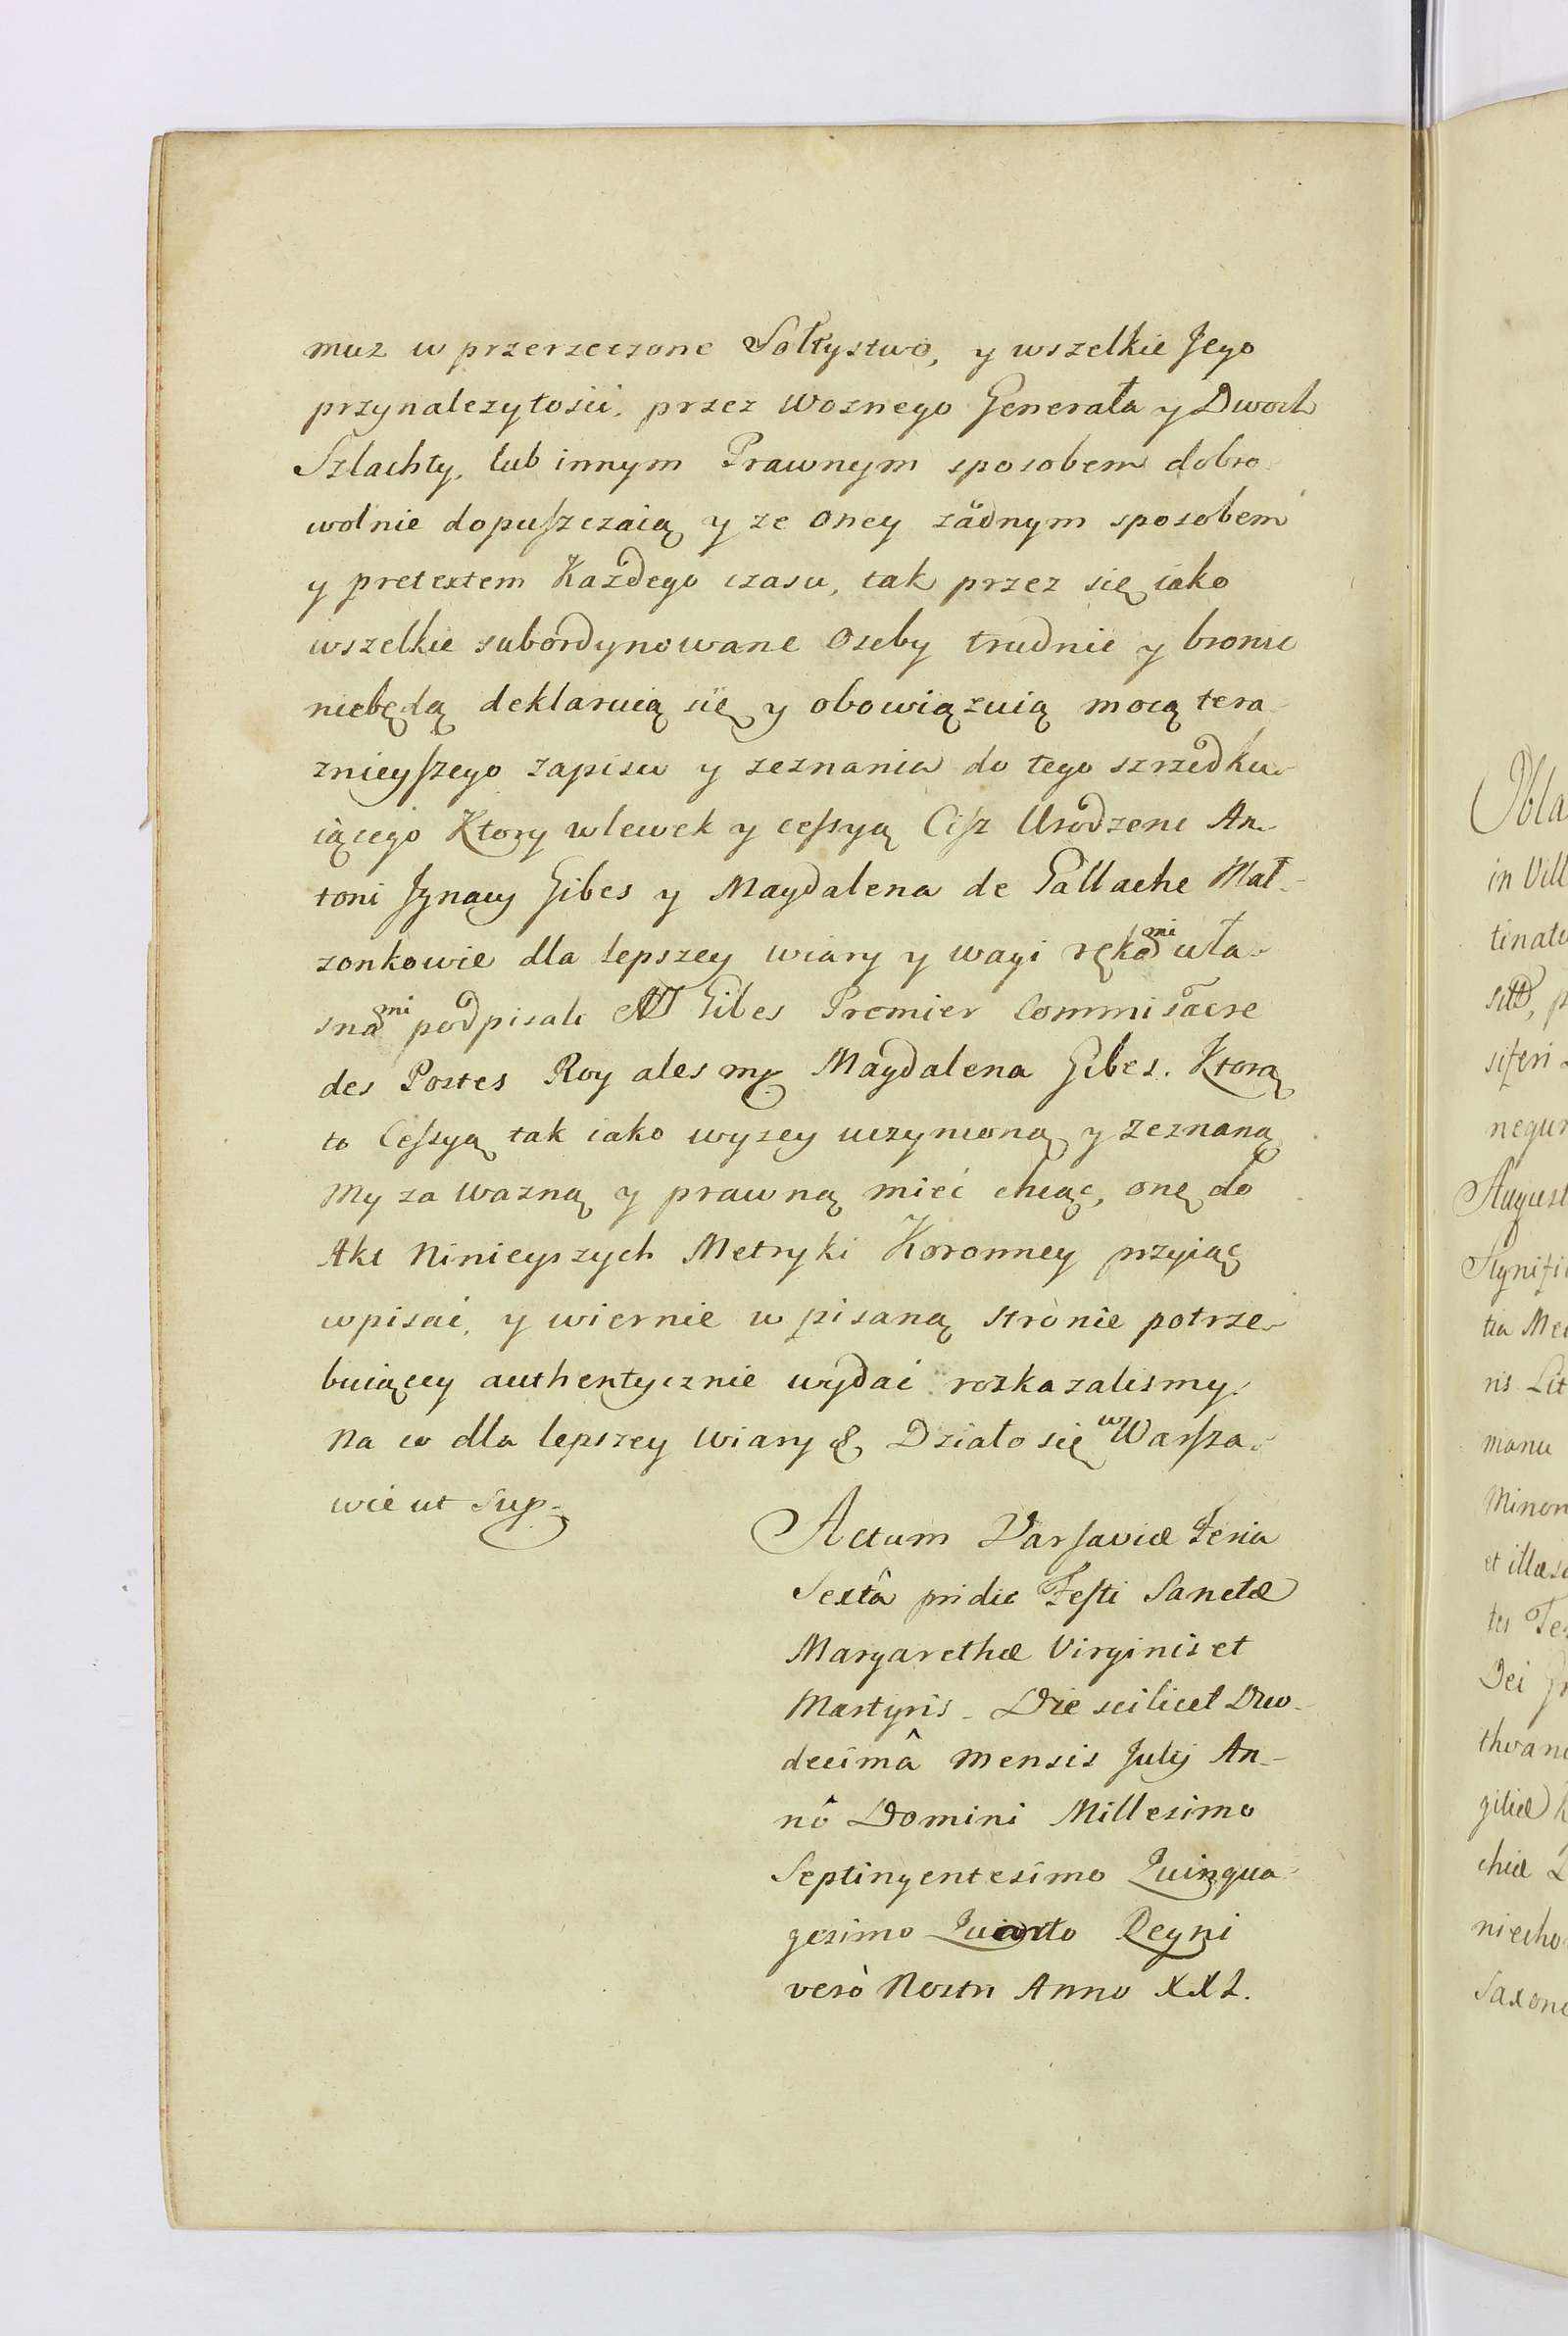 muz w przerzeczone Sołtystwo, y wszelkie Jego
przynalezytosci, przez Woznego Generała y Dwoch
Szlachty, lub innym Prawnym sposobem dobro
wolnie dopuszczaią y ze oney zadnym sposobem
y pretextem Kazdego czasu, tak przez się iako
wszelkie subordynowane Osoby trudnic y bronic
niebędą deklaruią się y obowiązuią mocą tera
znieyszego zapisu y zeznania do tego szrzodku
iącego Ktory wlewek y cessyą Cisz Urodzeni An
toni Jgnacy Gibes y Magdalena de Gallache Mał-
zonkowie dla lepszey wiary y wagi rękami wła
snami podpisali AJ Gibes Premier Commisaere
des Postes Roy ales mp Magdalena Gibes. Ktorą
to Cessyą tak iako wyzey uczynioną y Zeznaną
My za wazną y prawną mieć chcąc, onę do
Akt Ninieyszych Metryki Koronney przyiąć
wpisać, y wiernie w pisaną stronie potrze
buiącey authentycznie wydać rozkazalismy.
Na co dla lepszey Wiary & Działo się w Warsza
wie ut Sup.
Actum Varsaviæ Feria
Sextâ pridie Festi Sanctæ
Margarethæ Virginis et
Martyris - Die scilicet Duo-
decimâ Mensis Julij An-
nô Domini Millesimo
Septingentesimo Quinqua
gesimo Quarto Regni
verò Nostri Anno XXI.
Obla
in Vill
tinatu
p
siferi
negun
August
Signifi
tia Me
ris Lit
manu
Minor
et illæs
tes Te
Dei Gr
thvani
giliæ
chiæ
niecho
Saxon